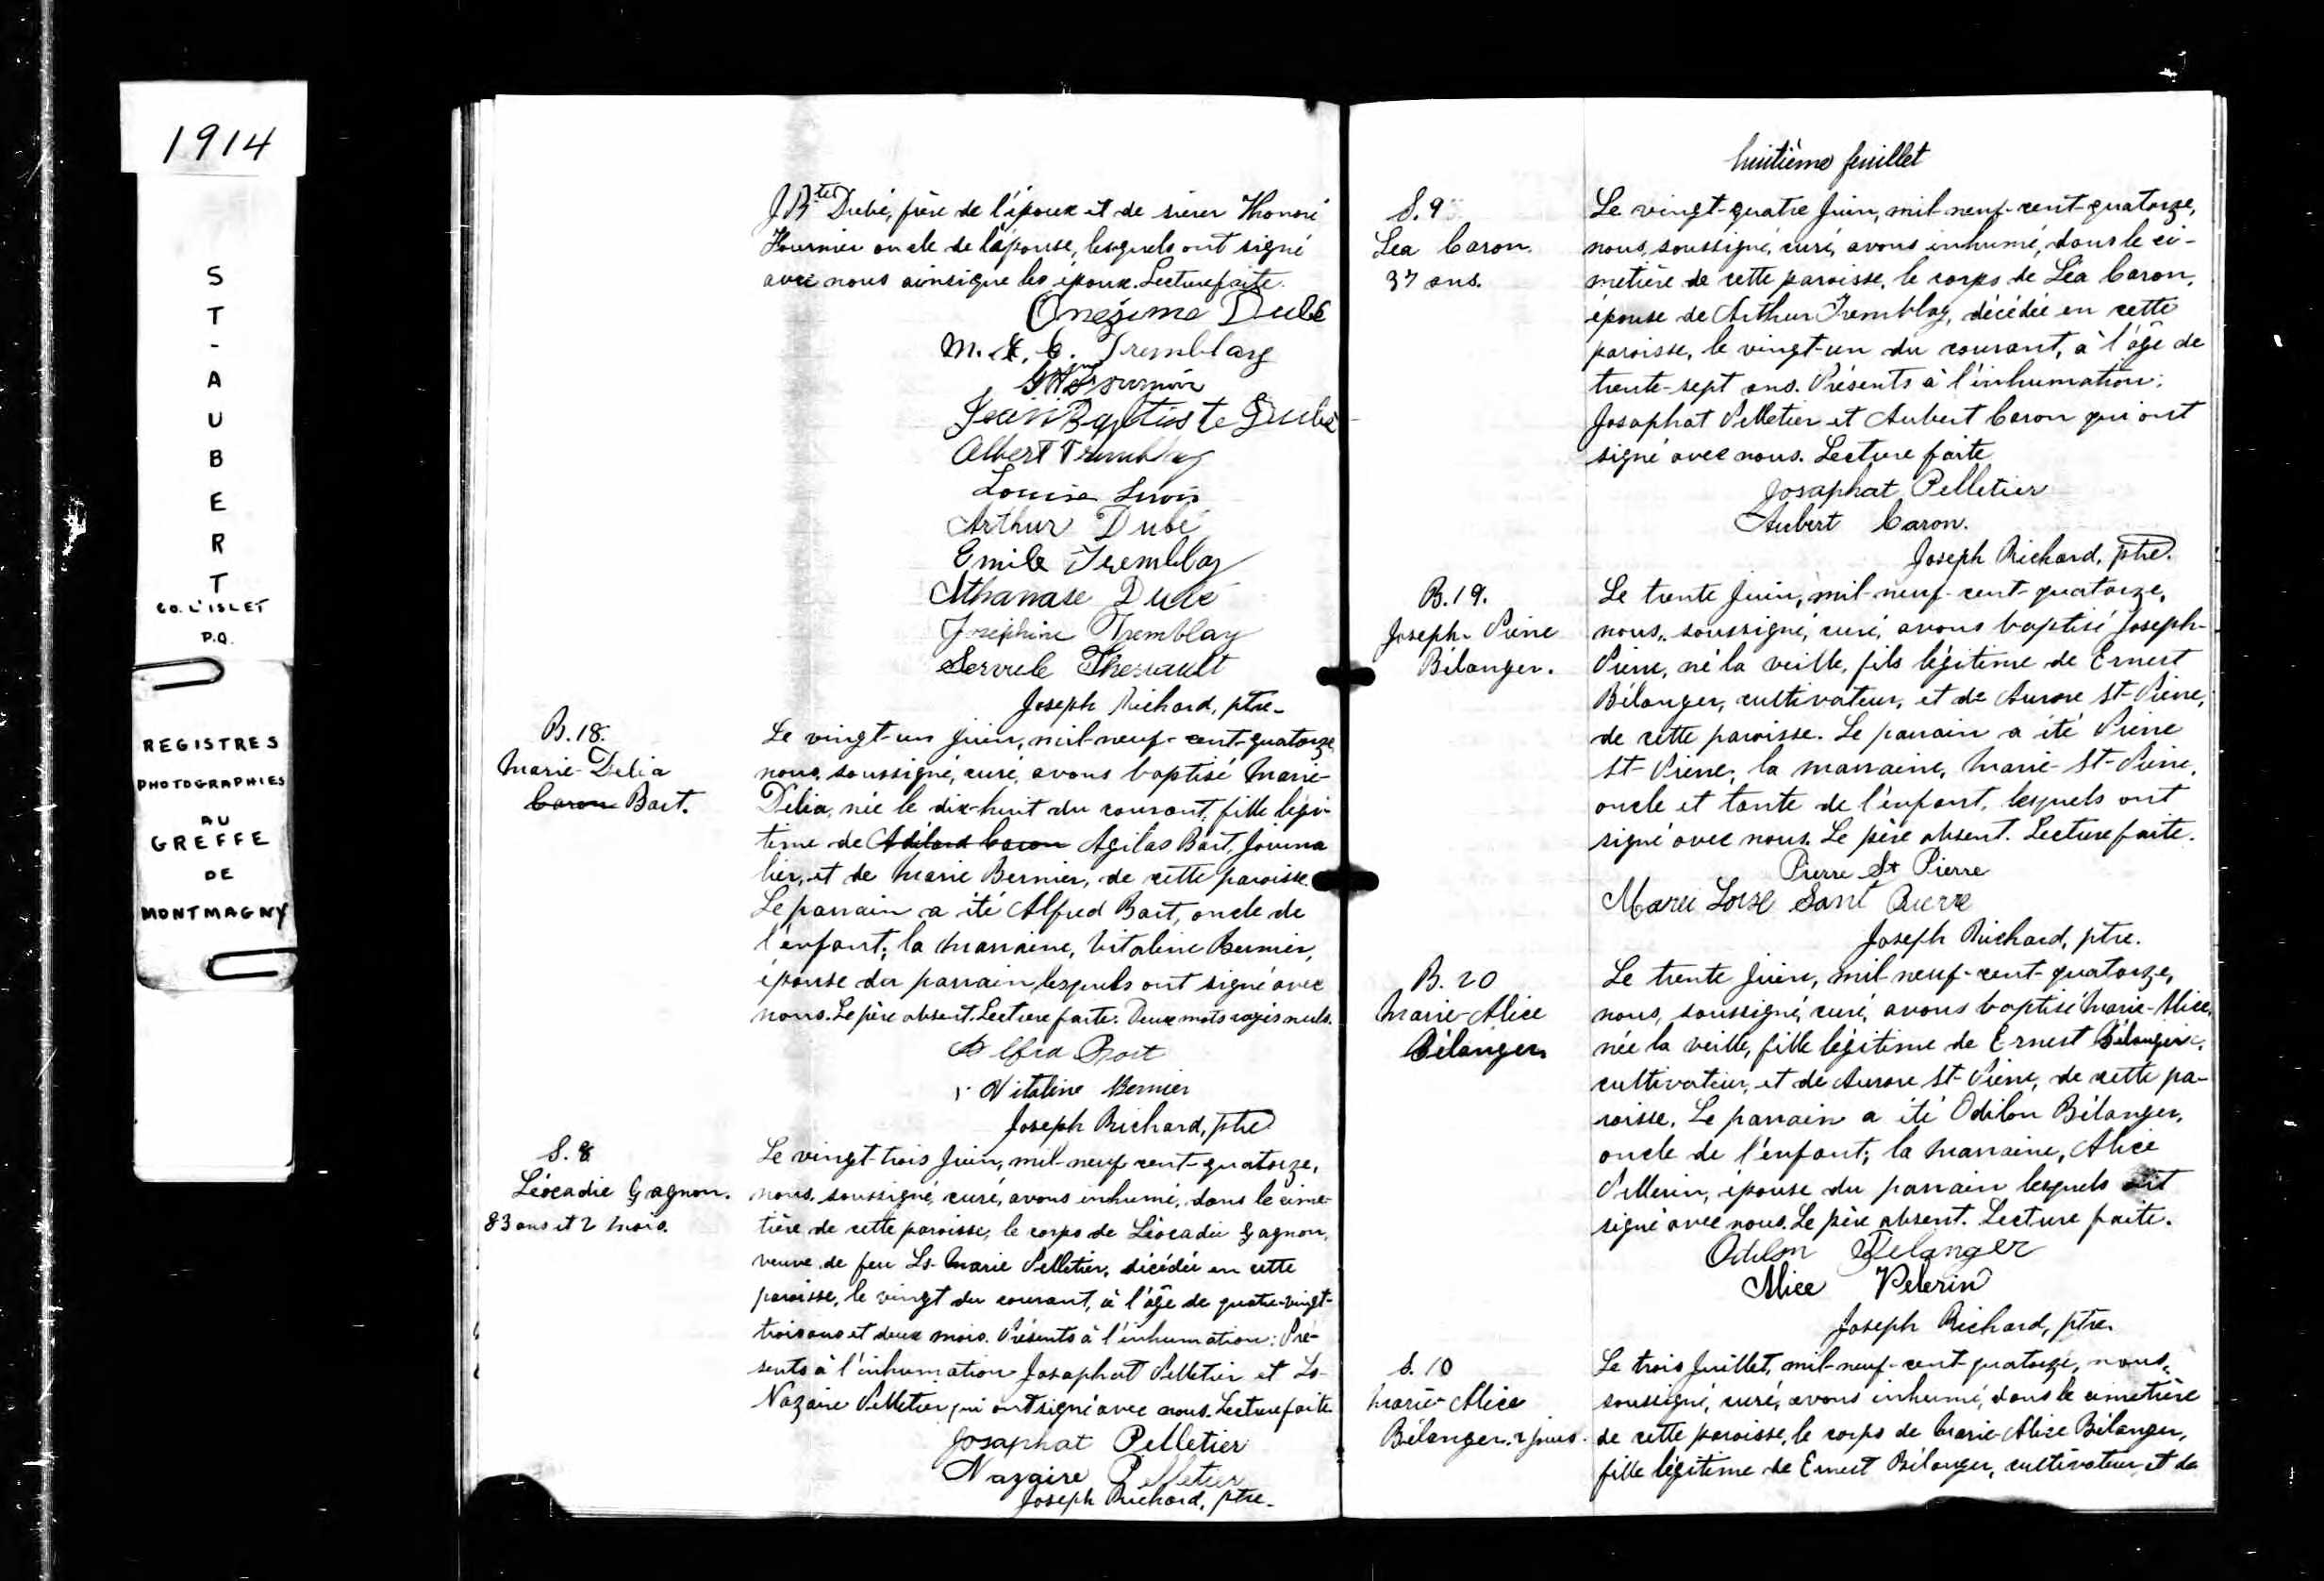 1914
ST-AUBERT
CO. L'ISLET
P.Q.
REGISTRES
PHOTOGRAPHIES
AU
GREFFE
DE
MONTMAGNY
J. Bte Dubé, père de l'époux et de sieur Honoré
Fournier oncle de l'épouse, lesquels ont signé
avec nous ainsi que les époux. Lecture faite.
Onézime Dubé
Tremblay
Jean Baptiste Dubé
Albert Tremblay
Louise
Arthur Dubé
Emile Tremblay
Athanase Dubé
Joséphine Tremblay
Servule Theriault
Joseph Richard, ptre.
B. 18.
Marie-Delia
Caron Bart.
Le vingt-un juin, mil-neuf-cent-quatorze
nous, soussigné, curé, avons baptisé Marie-
Délia, née le dix-huit du courant, fille légi-
time de Adélard Caron Agilas Bart, journa
lier, et de Marie Bernier, de cette paroisse.
Le parrain a été Alfred Bart, oncle de
l'enfant; la marraine, Vitaline Bernier,
épouse du parrain, lesquels ont signé avec
nous. Le père absent. Lecture faite. Deux mots rayés nuls.
Alfred Bart
Vitaline Bernier
Joseph Richard, ptre
S. 8
Léocadie Gagnon.
83 ans et 2 mois.
Le vingt-trois juin, mil-neuf-cent-quatorze,
nous, soussigné, curé, avons inhumé, dans le cime-
tière de cette paroisse, le corps de Léocadie Gagnon,
veuve de feu Ls-Marie Pelletier, décédée en cette
paroisse, le vingt du courant, à l'âge de quatre-vingt-
trois ans et deux mois. Présents à l'inhumation: Pré-
sents à l'inhumation Josaphat Pelletier et Ls-
Nazaire Pelletier qui ont signé avec nous. Lecture faite
Josaphat Pelletier
Nazaire Pelletier
Joseph Richard, ptre.
huitième feuillet
S. 9
Léa Caron.
37 ans.
Le vingt-quatre juin, mil-neuf-cent-quatorze,
nous, soussigné, curé, avons inhumé, dans le ci-
metière de cette paroisse, le corps de Léa Caron,
épouse de Arthur Tremblay, décédée en cette
paroisse, le vingt-un du courant, à l'âge de
trente-sept ans. Présents à l'inhumation:
Josaphat Pelletier et Aubert Caron qui ont
signé avec nous. Lecture faite
Josaphat Pelletier
Aubert Caron.
Joseph Richard, ptre.
B. 19.
Joseph-Pierre
Bélanger.
Le trente juin, mil-neuf-cent-quatorze,
nous, soussigné, curé, avons baptisé Joseph-
Pierre, né la veille, fils légitime de Ernest
Bélanger, cultivateur, et de Aurore St-Pierre,
de cette paroisse. Le parrain a été Pierre
St-Pierre; la marraine, Marie-St-Pierre,
oncle et tante de l'enfant, lesquels ont
signé avec nous. Le père absent. Lecture faite.
Pierre St Pierre
Marie Saint Pierre
Joseph Richard, ptre.
B. 20
Marie-Alice
Bélanger
Le trente juin, mil-neuf-cent-quatorze,
nous, soussigné, curé, avons baptisé Marie-Alice,
née la veille, fille légitime de Ernest Bélanger,
cultivateur, et de Aurore St-Pierre, de cette pa-
roisse. Le parrain a été Odilon Bélanger,
oncle de l'enfant; la marraine, Alice
Pellerin, épouse du parrain lesquels ont
signé avec nous. Le père absent. Lecture faite.
Odilon Belanger
Alice Pelerin
Joseph Richard, ptre.
S. 10
Marie-Alice
Bélanger. 2 jours.
Le trois juillet, mil-neuf-cent-quatorze, nous,
soussigné, curé, avons inhumé, dans le cimetière
de cette paroisse, le corps de Marie-Alice Bélanger,
fille légitime de Ernest Bélanger, cultivateur, et de